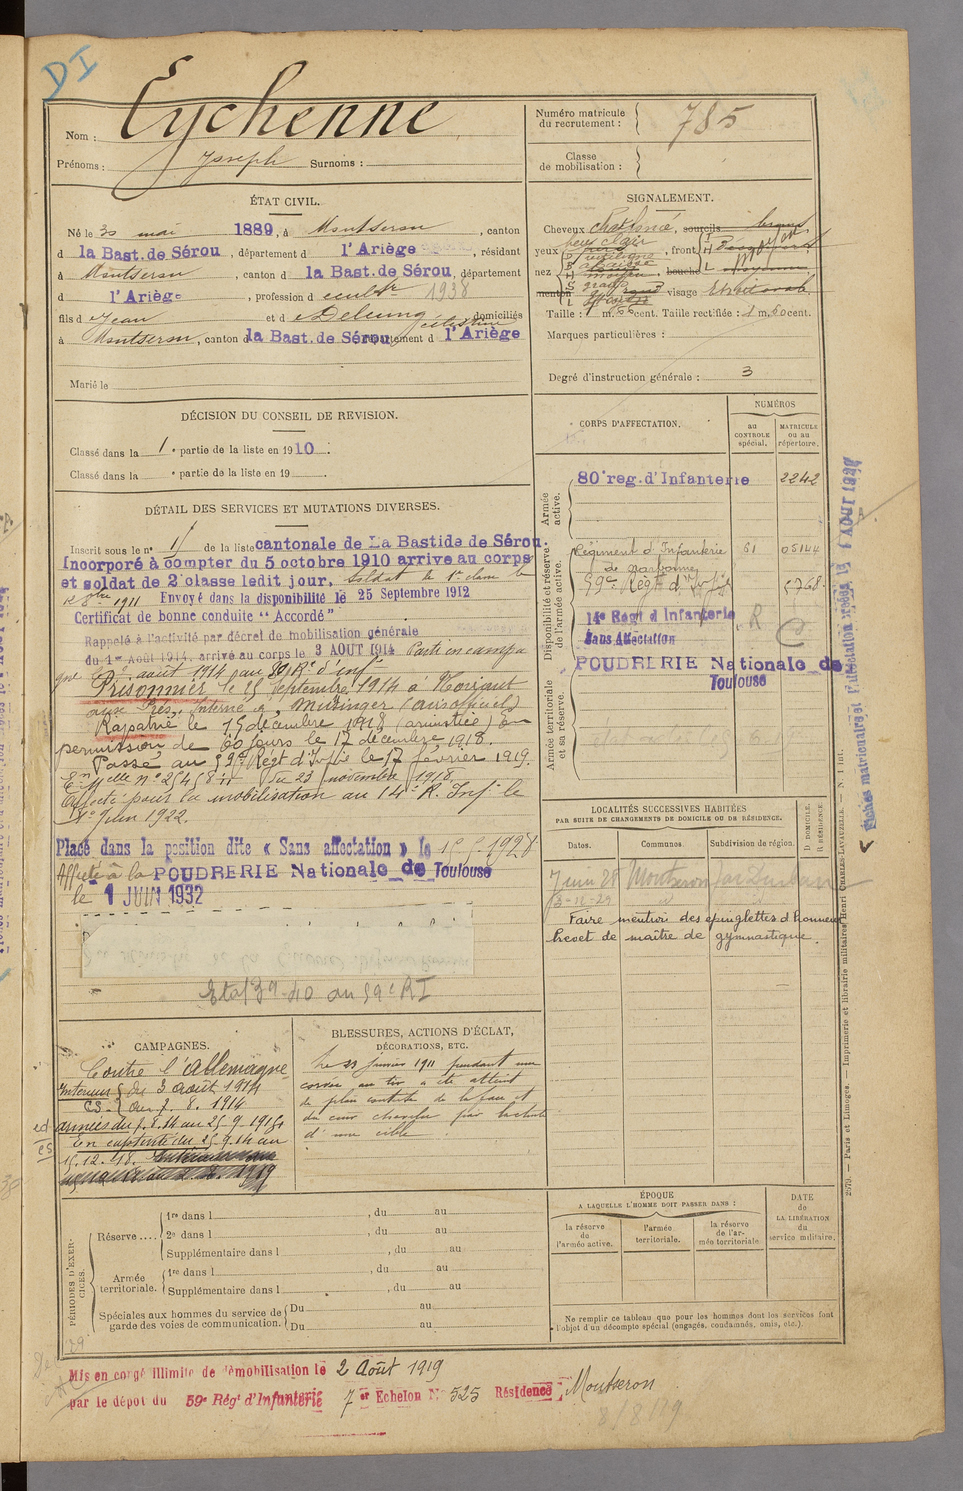 DI
Nom : Eychenne
Prénoms : Joseph Surnoms :
Numéro matricule du recrutement : 785
Classe de mobilisation :
ÉTAT CIVIL.
Né le 30 mai 1889, à Montseron, canton
d la Bast. de Sérou, département d l'Ariège, résidant
à Montseron, canton d la Bast. de Sérou, département
d l'Ariège, profession d cultr 1938
fils d Jean et d Delung Célestine domiciliés
à Montseron, canton d la Bast. de Sérou département d l'Ariège
Marié le
SIGNALEMENT.
Cheveux châtains, sourcils
yeux front
nez bouche
menton visage
Taille : 1 m. cent. Taille rectifiée : 1 m. 60 cent.
Marques particulières :
Degré d'instruction générale : 3
DÉCISION DU CONSEIL DE REVISION.
Classé dans la 1e partie de la liste en 1910.
Classé dans la e partie de la liste en 19
DÉTAIL DES SERVICES ET MUTATIONS DIVERSES.
Inscrit sous le n° 15 de la liste cantonale de La Bastide de Sérou.
Incorporé à compter du 5 octobre 1910 arrive au corps
et soldat de 2e classe ledit jour. Soldat de 1re classe le
8bre 1911 Envoyé dans la disponibilité le 25 Septembre 1912
Certificat de bonne conduite "Accordé"
Rappelé à l'activité par décret de mobilisation générale
du 1er Août 1914, arrivé au corps le 3 AOUT 1914 Parti en campa
gne août 1914 au d'inf
Prisonnier le 25 Septembre 1914 à
Interné à (avis officiel)
Rapatrié le 15 décembre 1918 (armistice) En
permission de 60 jours le 17 décembre 1918.
Passé au 59e Régt d'Infie le 17 février 1919.
En Melle n° 25458 du 23 novembre 1918.
Affecté pour la mobilisation au 14e R. Infie le
1er Juin 1922.
Placé dans la position dite « Sans affectation » le 1928
Affecté à la POUDRERIE Nationale de Toulouse
le 1 JUIN 1932
Etat 39-40 au 59e RI
CORPS D'AFFECTATION.
NUMÉROS
au CONTROLE spécial.
MATRICULE ou au répertoire.
Armée active.
80e reg. d'Infanterie 2242
Disponibilité et réserve de l'armée active.
Régiment d'Infanterie 61 05144
de Narbonne
59e Régt d'Infie 5768
14e Régt d'Infanterie R
Sans Affectation C
POUDRERIE Nationale de
Toulouse
Armée territoriale et sa réserve.
Fiches matricules et
LOCALITÉS SUCCESSIVES HABITÉES
PAR SUITE DE CHANGEMENTS DE DOMICILE OU DE RÉSIDENCE.
Dates. Communes. Subdivision de région. D. DOMICILE. R. RÉSIDENCE.
7 juin 28 Montseron par Durban
13-12-29
Faire mention des épinglettes d'honneur
brevet de maître de gymnastique.
CAMPAGNES.
Contre l'Allemagne
Intérieur du 3 août 1914
CS. au 7. 8. 1914
armées du 7.8.14 au 25.9.1914
En captivité du 25.9.14 au
15.12.18.
BLESSURES, ACTIONS D'ÉCLAT,
DÉCORATIONS, ETC.
Le 23 janvier 1911 pendant une
corvée au tir a été atteint
de plaie contuse de la face et
du cuir chevelu par la chute
d'une cible
PÉRIODES D'EXERCICES.
Réserve .... 1re dans l , du au
2e dans l , du au
Supplémentaire dans l , du au
Armée territoriale. 1re dans l , du au
Supplémentaire dans l , du au
Spéciales aux hommes du service de garde des voies de communication. Du au
Du au
ÉPOQUE
A LAQUELLE L'HOMME DOIT PASSER DANS :
la réserve de l'armée active.
l'armée territoriale.
la réserve de l'armée territoriale
DATE de LA LIBÉRATION du service militaire.
Ne remplir ce tableau que pour les hommes dont les services font
l'objet d'un décompte spécial (engagés, condamnés, omis, etc.).
Mis en congé illimité de démobilisation le 2 Août 1919
par le dépôt du 59e Régt d'Infanterie 7er Echelon N° 525 Résidence Montseron
8/8/19
2979. — Paris et Limoges. — Imprimerie et librairie militaires Henri CHARLES-LAVAUZELLE. — N. 1 bis.